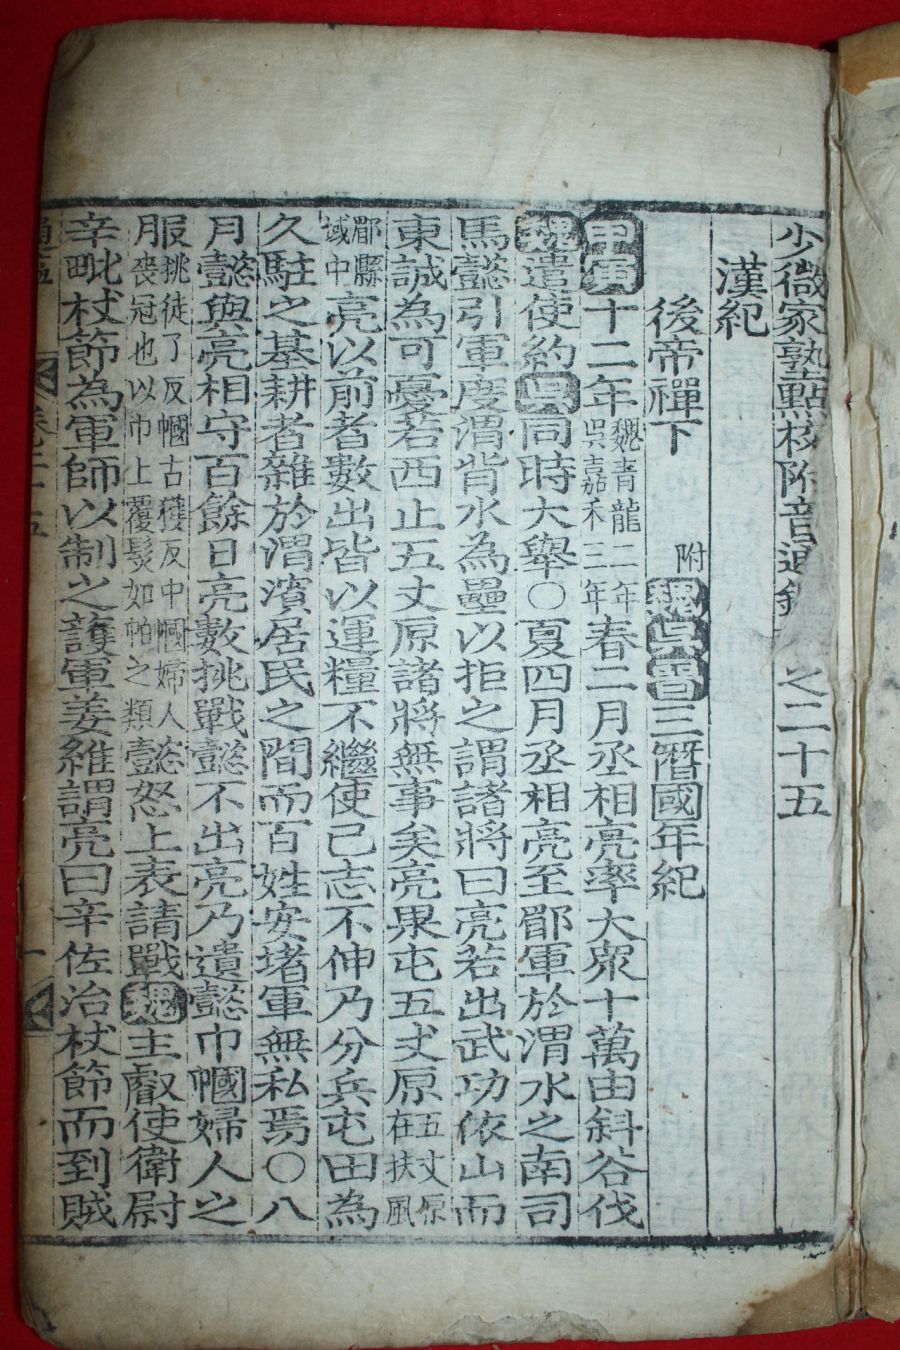 少微家塾點校附音通之二十五
漢紀
後帝禪下　附魏吳晉三僭國年紀
甲寅十二年魏青龍二年吳嘉禾三年春二月丞相亮率大衆十萬由斜谷伐
魏遣使約吳同時大舉○夏四月丞相亮至郿軍於渭水之南司
馬懿引軍度渭背水為壘以拒之謂諸將曰亮若出武功依山而
東誠為可憂若西止五丈原諸將無事矣亮果屯五丈原五丈原在扶風
郿縣域中亮以前者數出皆以運糧不繼使己志不伸乃分兵屯田為
久駐之基耕者雜於渭濱居民之間而百姓安堵軍無私焉○八
月懿與亮相守百餘日亮數挑戰懿不出亮乃遺懿巾幗婦人之
服挑徒了反幗古獲反中幗婦人喪冠也以巾上覆髮如帕之類懿怒上表請戰魏主叡使衛尉
辛毗杖節為軍師以制之護軍姜維謂亮曰辛佐治杖節而到賊